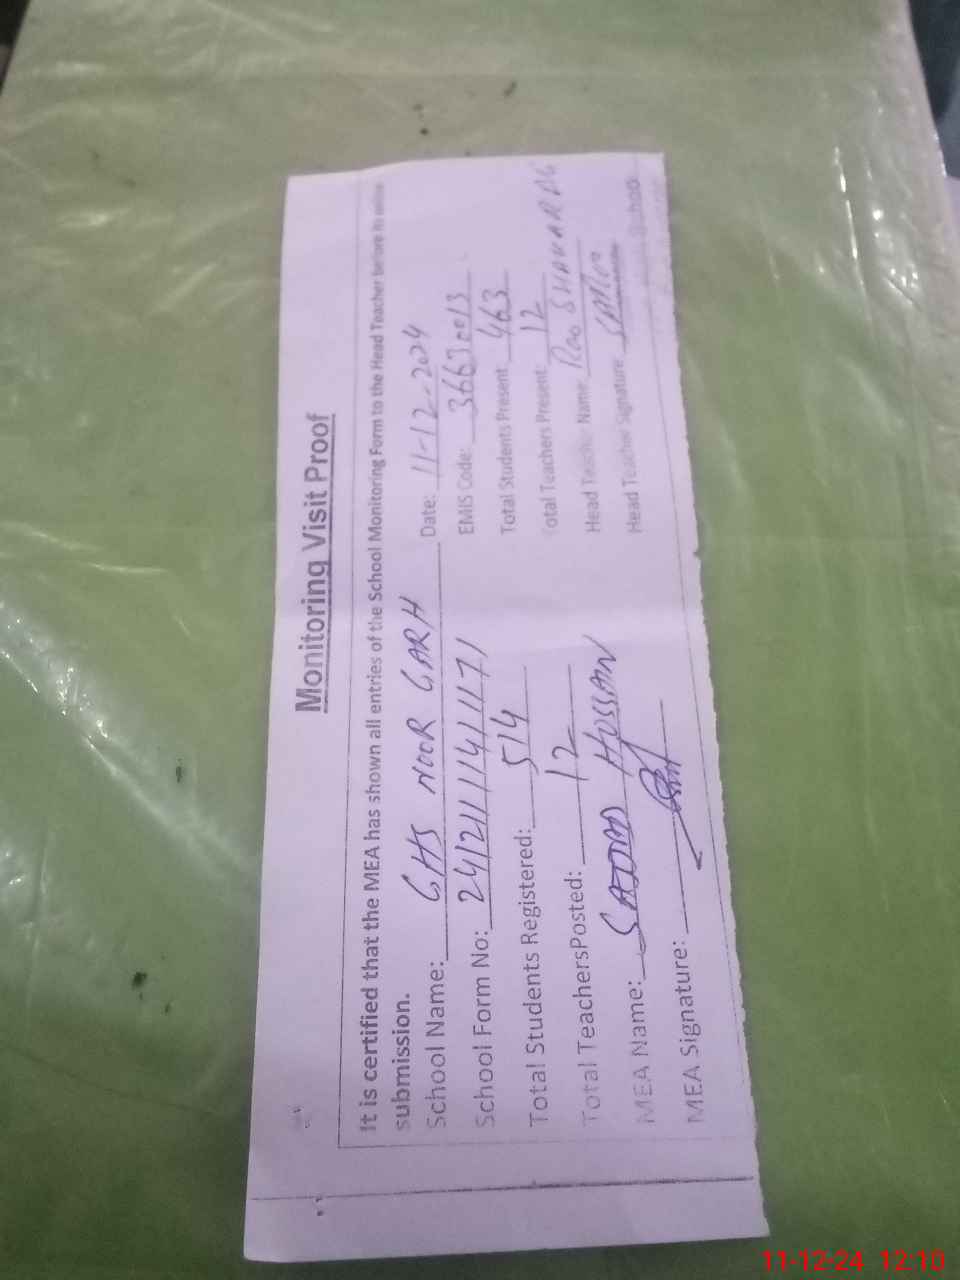 Monitoring Visit Proof
It is certified that the MEA has shown all entries of the School Monitoring Form to the Head Teacher before its online
submission.
School Name: GHS NOOR GARH Date: 11-12-2024
School Form No: 24121111411171 EMIS Code: 36630013
Total Students Registered: 514 Total Students Present: 463
Total TeachersPosted: 12 Total Teachers Present: 12
MEA Name: SAJJAD HUSSAIN Head Teacher Name: Rao
MEA Signature: Head Teacher Signature:
11-12-24 12:10